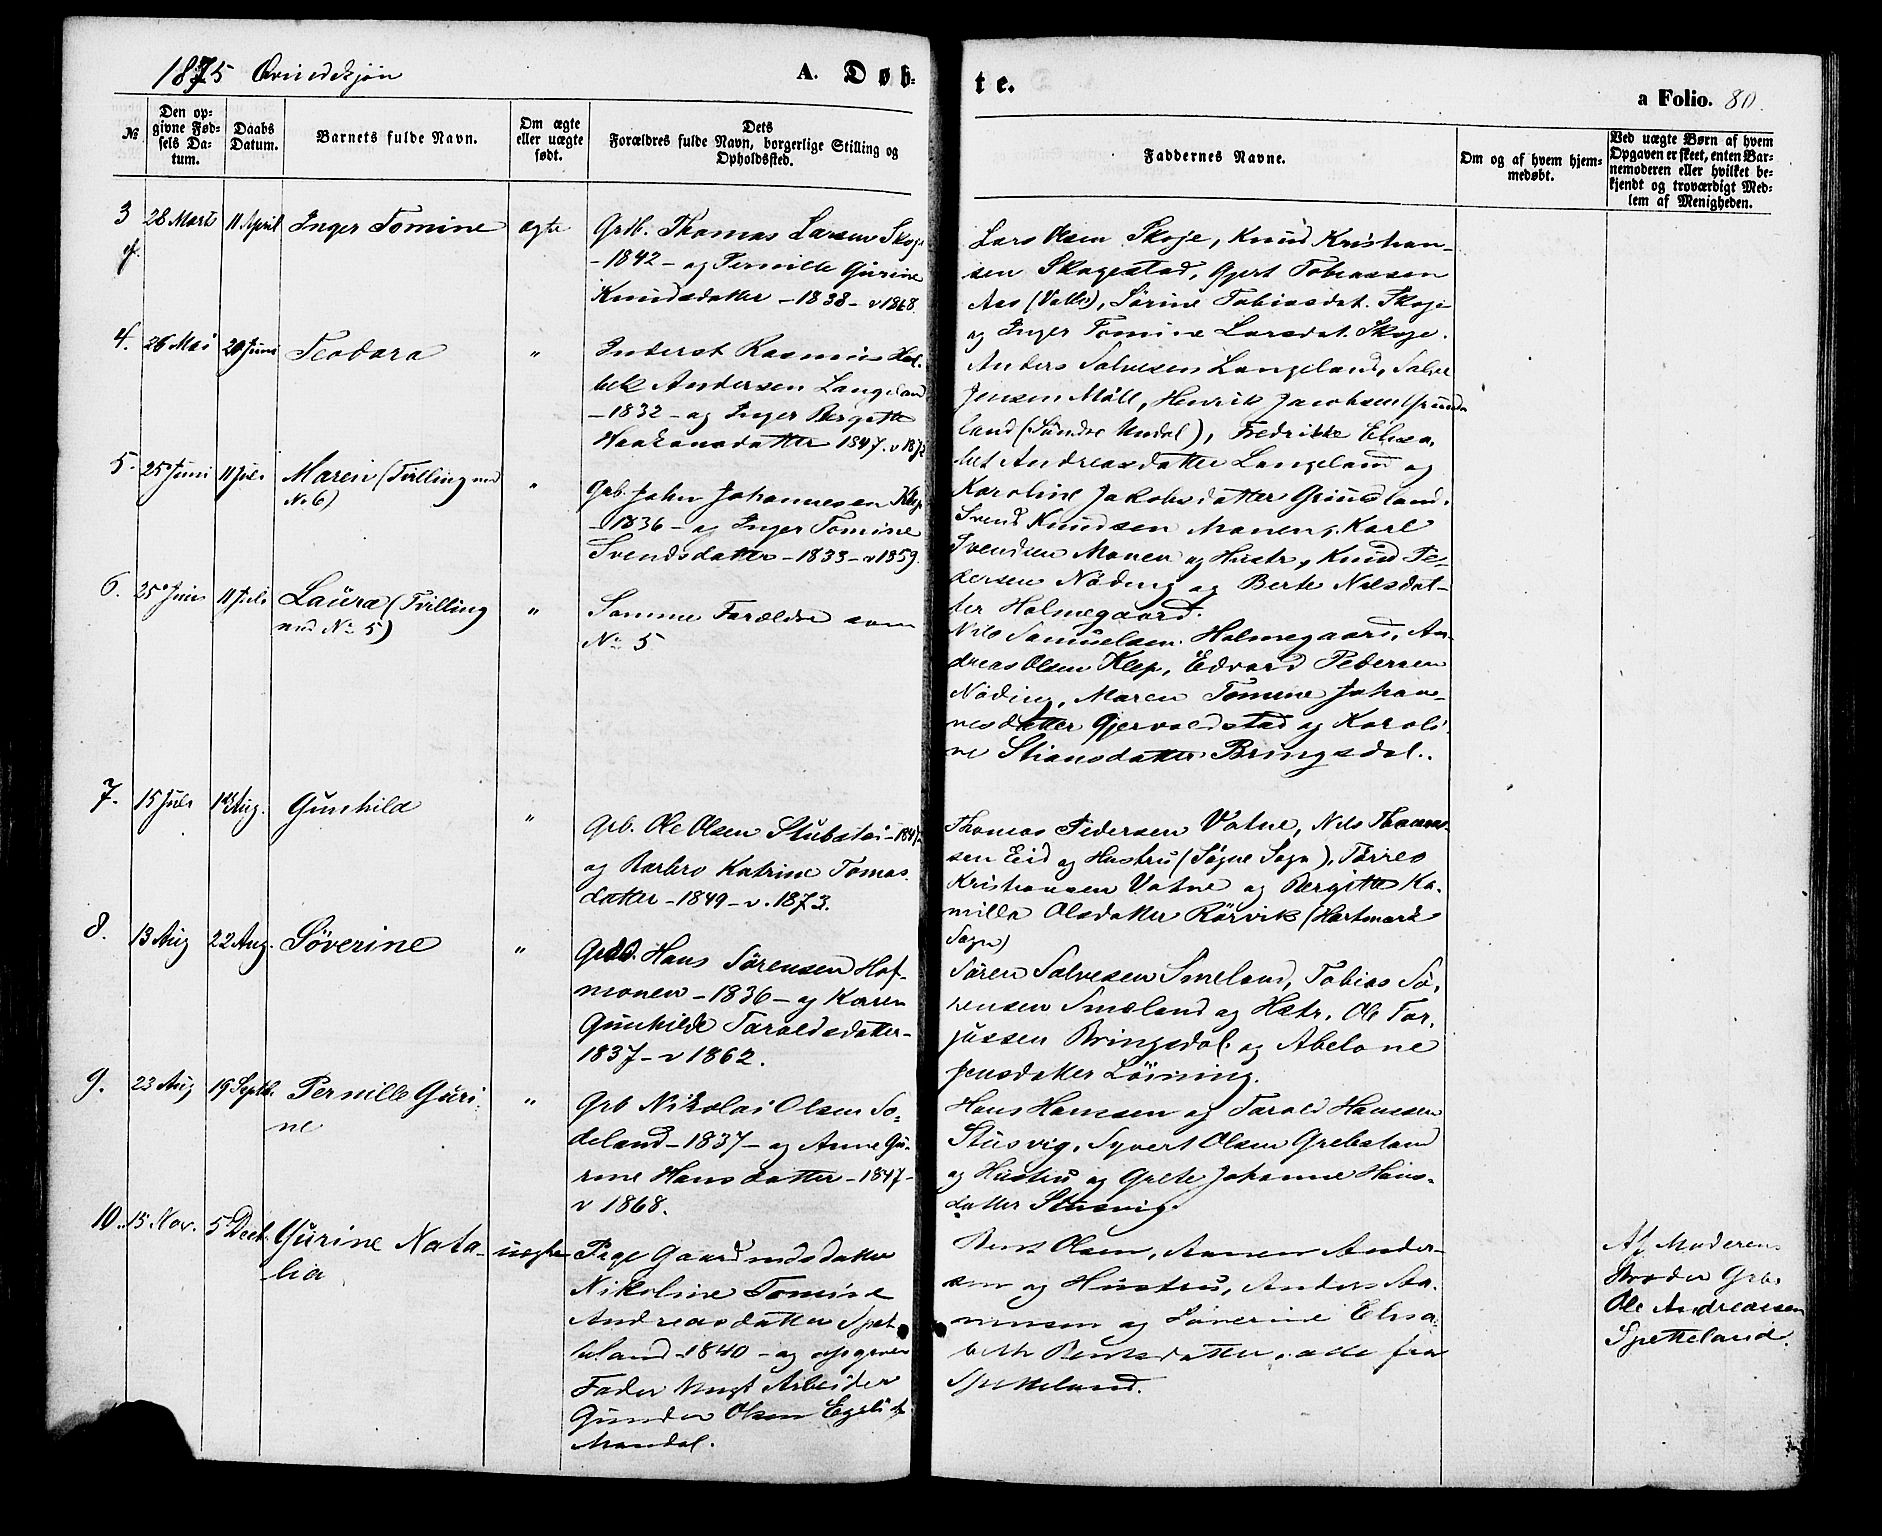 1875 Qvindekjøn
A. Døb-
te.
a Folio. 80.
№
Den op-
givne Fød-
sels Da-
tum.
Daabs
Datum.
Barnets fulde Navn.
Om ægte
eller uægte
født.
Dets
Forældres fulde Navn, borgerlige Stilling og
Opholdssted.
Faddernes Navne.
Om og af hvem hjem-
medøbt.
Ved uægte Børn af hvem
Opgaven er skeet, enten Bar-
nemoderen eller hvilket be-
kjendt og troværdigt Med-
lem af Menigheden.
3 28 Marts 11 April Inger Tomine ægte
Grdb. Thomas Larsen Skoje
- 1842 - og Pernille Gurine
Knudsdatter - 1838 - v 1868.
Lars Olsen Skoje, Knud Kristian-
sen Skagestad, Gjert Tobiassen
Aas (Valle), Sørine Tobiasdat. Skoje
og Inger Tomine Larsdat. Skoje.
4. 26 Mai 20 Juni Teodora "
Inderst Rasmus Hol-
bek Andersen Langeland
- 1832 - og Inger Bergitte
Haakonsdatter 1847. v 187
Anders Salvesen Langeland, Salve
Jensen Møll, Henrik Jacobsen Grunde
land (Søndre Undal), Fredrikke Elisa,
bet Andreasdatter Langeland og
Karoline Jakobsdatter Grundland.
5. 25 Juni 11 Juli Maren (Tvilling med
No 6) "
Grb. John Johannesen Klep
- 1836 - og Inger Tomine
Svendsdatter - 1833 - v 1859.
Svend Knudsen Monen, Karl
Svendsen Monen og Hustr, Knud Pe-
dersen Nöding og Berte Nilsdat-
ter Holmegaard.
6. 25 Juni 11 Juli Laura (Tvilling
med No 5) "
Samme Forældre som
No 5
Nils Samuelsen Holmegaard, An-
dreas Olsen Klep, Edvard Pedersen
Nöding, Maren Tomine Johan-
nesdatter Gjervoldstad og Karoli-
ne Stiansdatter Bringsdal.
7. 15 Juli 1 Aug. Gunhild "
Grb. Ole Olsen Stubstøi - 1847
og Barbro Katrine Tomas
datter - 1849 - v. 1873.
Thomas Pedersen Vatne, Nils Thom-
sen Eid og Hustru (Søgne Sogn), Tørres
Kristiansen Vatne og Bergitte Ka-
milla Olsdatter Rörvik (Hartmark
Sogn)
8. 13 Aug 22 Aug. Söverine "
Grdb. Hans Sörensen Hof-
monen - 1836 - og Karen
Gunhilde Taroldsdatter -
1837 - v 1862.
Sören Salvesen Smeland, Tobias Sö,
rensen Smeland og Hstr, Ole Tor,
jussen Bringsdal og Abelone
Jensdatter Löining.
9. 23 Aug 19 Septb. Pernille Guri-
ne "
Grb Nikolai Olsen So-
deland - 1837 - og Anne Gu-
rine Hansdatter - 1847 -
v 1868.
Hans Hansen og Tarald Hansen
Stusvig, Syvert Olsen Grebsland
og Hustru og Grete Johanne Hans-
datter Stusvig.
10. 15 Nov. 5 Decb. Gurine Nata-
lia uægte
Pige Gaardmdsdatter
Nikoline Tomine
Andreasdatter Spet-
teland - 1840 - og opgiven
Fader Ungk Arbeider
Gunder Olsen Egeli af
Mandal.
Bent Olsen, Aanen Ander-
sen og Hustru, Anders Aa-
nensen og Söverine Elisa-
beth Bentsdatter, alle fra
Spetteland.
Af Moderens
Broder Grb.
Ole Andreassen
Spetteland.